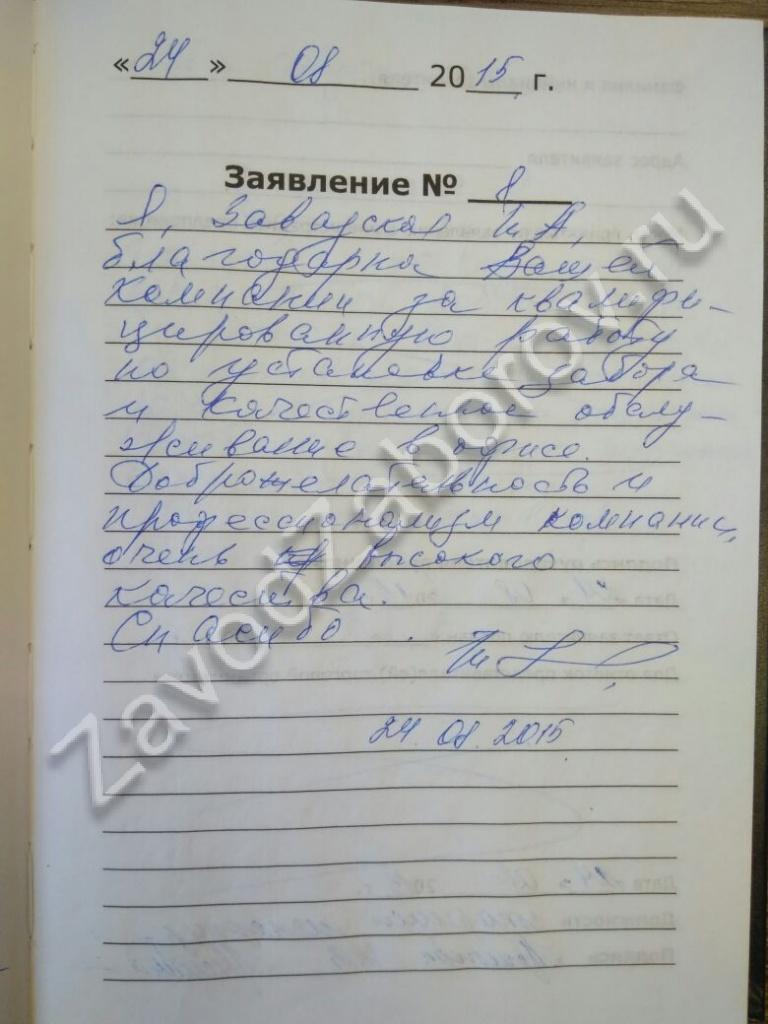 «24» 08 2015 г.
Заявление № 8
Я, Завадская Т.А,
благодарна Вашей
компании за квалифи-
цированную работу
по установке забора
и качественное обслу-
живание в офисе.
Доброжелательность и
профессионализм компании,
очень высокого
качества.
Спасибо.
24.08.2015
ZavodZaborov.ru